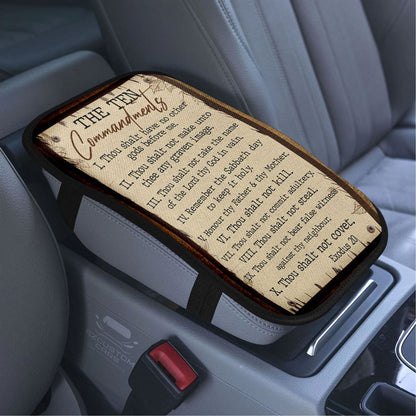 THE TEN
Commandments
I. Thou shalt have no other
gods before me.
II. Thou shalt not make unto
thee any graven image.
III. Thou shalt not take the name
of the Lord thy God in vain.
IV. Remember the Sabbath day
to keep it holy.
V. Honour thy Father & thy Mother.
VI. Thou shalt not kill.
VII. Thou shalt not commit adultery.
VIII. Thou shalt not steal.
IX. Thou shalt not bear false witness
against thy neighbour.
X. Thou shalt not covet.
Exodus 20
CUSTOM